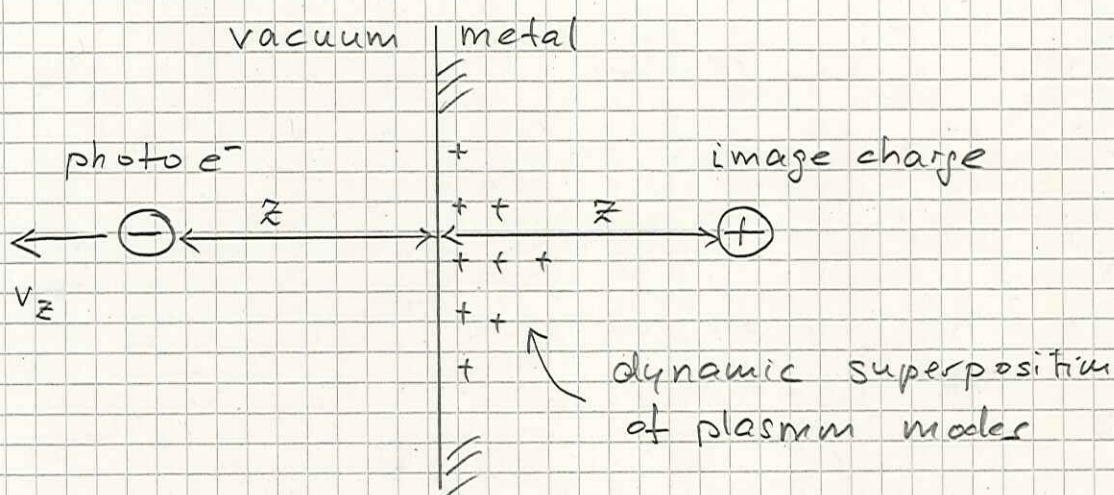 vacuum metal
photo e⁻ + image charge
− z + + z +
+ + +
v_z
+ +
+ dynamic superposition
of plasmon modes